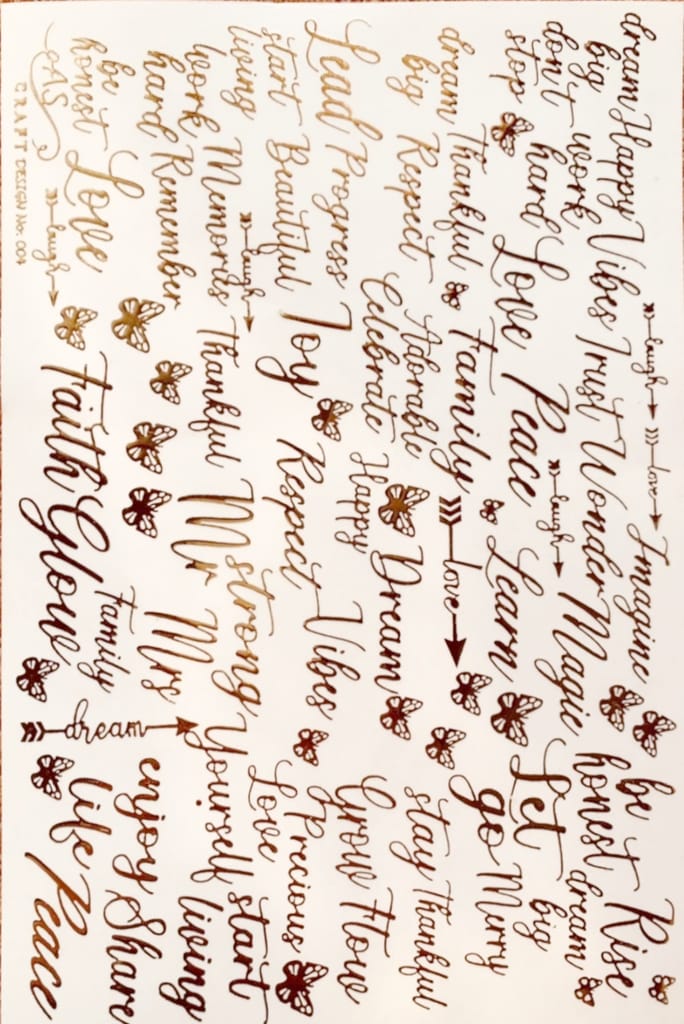 laugh love Imagine be Rise
dream Happy Vibes Trust Wonder Magic honest dream
big work laugh big
don't hard Love Peace Learn Let
stop go Merry
dream Thankful Family love stay Thankful
big Respect Adorable Dream Grow Flow
Celebrate Happy
Lead Progress Joy Respect Vibes Precious
start Beautiful Love
living laugh strong Yourself start
work Memories Thankful Mr Mrs living
hard Remember enjoy Share
be Love Family dream life
honest Faith Glow Peace
AS laugh
CRAFT DESIGN No. 004